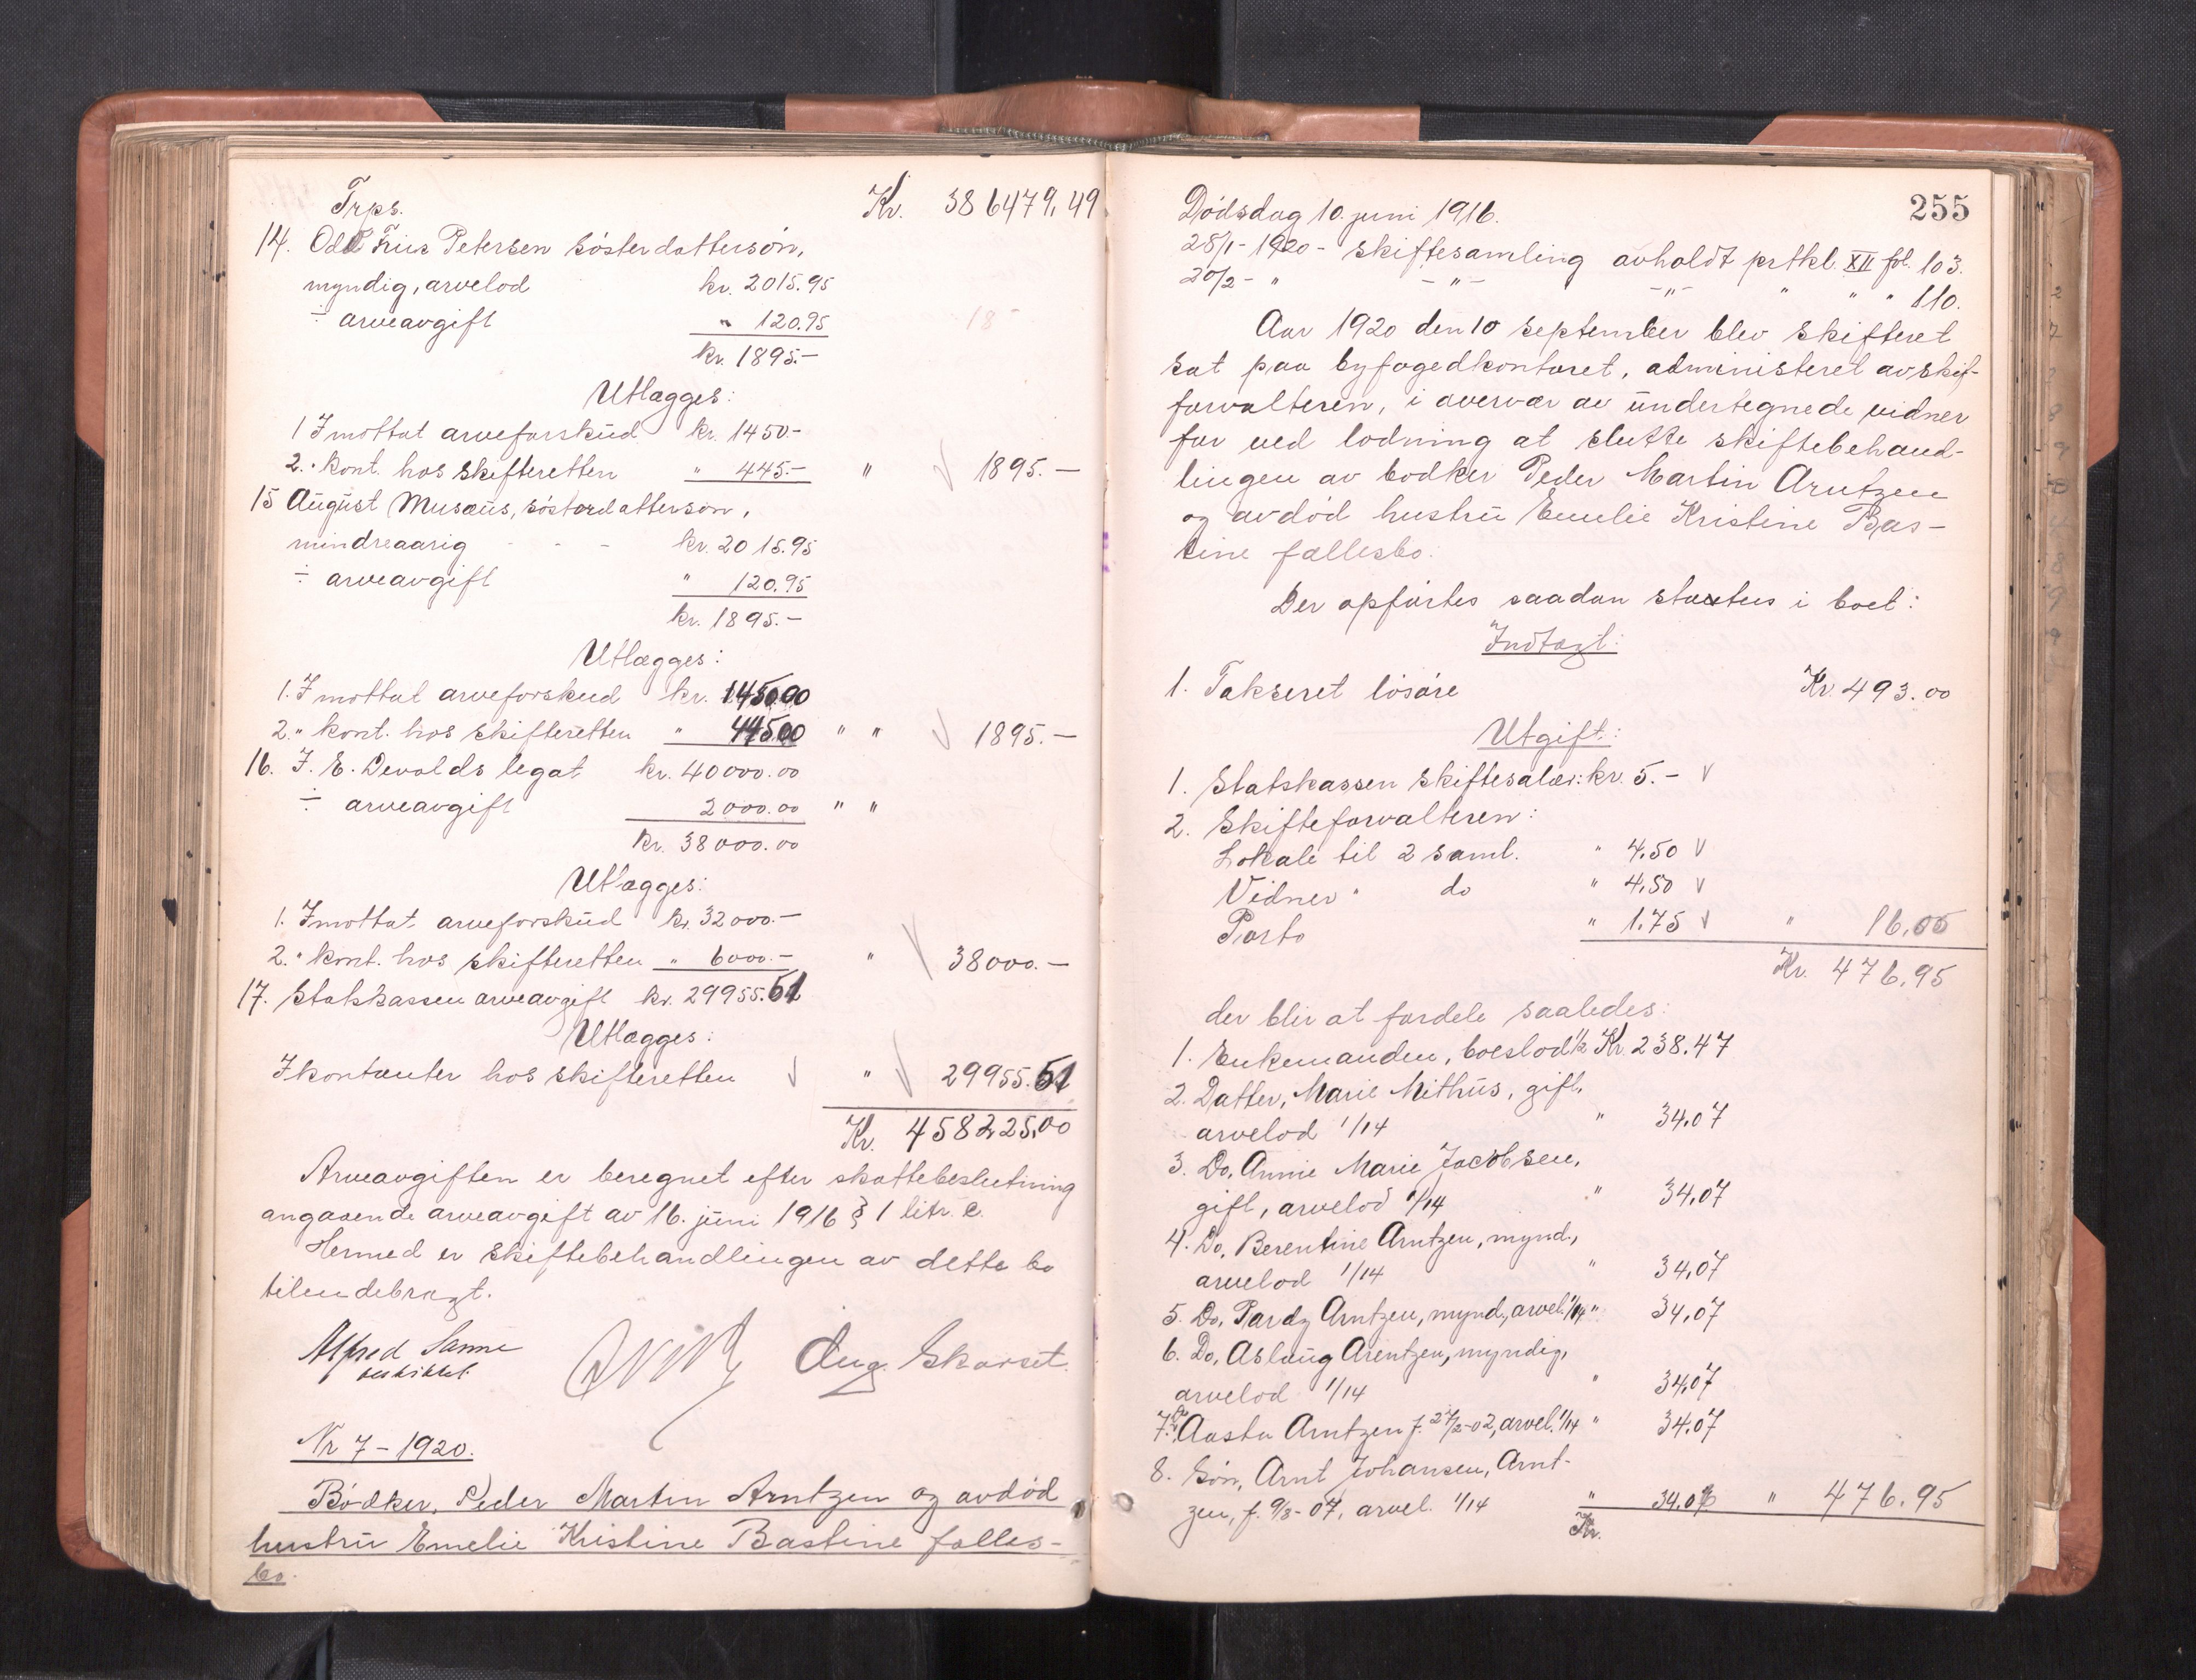 Trps. Kr. 386479,49
14. Odd Friis Petersen søsterdattersøn,
myndig, arvelod kr. 2015.95
÷ arveavgift " 120.95
kr. 1895.-
Utlægges:
1 I mottat arveforskud kr. 1450.-
2. " kont. hos skifteretten " 445.- " 1895.-
15 August Musæus, søsterdattersøn,
mindreaarig - - - kr. 2015.95
÷ arveavgift " 120.95
kr. 1895.-
Utlægges:
1. I mottat arveforskud kr. 1450.00
2. " kont. hos skifteretten " 445.00 " " 1895.-
16. J. E. Devolds legat kr. 40000.00
÷ arveavgift 2000.00 " "
kr. 38000.00
Utlægges:
1. I mottat arveforskud kr. 32000.-
2. " kont. hos skifteretten " 6000.- " 38000.-
17. Statskassen arveavgift kr. 29955.51
Utlægges:
I kontanter hos skifteretten " 29955.51
Kr. 458225,00
Arveavgiften er beregnet efter skattebeslutning
angaaende arveavgift av 16. juni 1916 § 1 litr. c.
Hermed er skiftebehandlingen av dette bo
tilendebragt.
Alfred Sanne Aug. Skarset.
beskikket.
Nr 7 - 1920.
Bødker, Peder Martin Arntzen og avdød
hustru Emelie Kristine Bastine fælles-
bo.
255
Dødsdag 10. juni 1916.
28/1 - 1920 - skiftesamling avholdt prtkl. XII fol. 103.
20/2 - " - " - - " - " " " 110.
Aar 1920 den 10 september blev skifteret
sat paa byfogedkontoret, administeret av skif-
forvalteren, i overvær av undertegnede vidner
for ved lodning at slutte skiftebehand-
lingen av bødker Peder Martin Arntzen
og avdød hustru Emelie Kristine Bas-
tine fællesbo.
Der opførtes saadan status i boet:
Indtægt:
1. Takseret løsøre Kr. 493.00
Utgift:
1. Statskassen skiftesalær: kr. 5.-
2. Skifteforvalteren:
Lokale til 2 saml. " 4.50
Vidner " do " 4.50
Porto " 1.75 " 16,05
Kr. 476.95
der blir at fordele saaledes:
1. Enkemanden, boeslod ½ Kr. 238.47
2. Datter, Marie Mithus, gift,
arvelod 1/14 " 34.07
3. Do, Annie Marie Jacobsen,
gift, arvelod 1/14 " 34.07
4. Do, Berentine Arntzen, mynd.,
arvelod 1/14 " 34.07
5. Do, Pardy Arntzen, mynd., arvel. 1/14 " 34.07
6. Do, Aslaug Arentzen, myndig,
arvelod 1/14 " 34.07
7. Do Aasta Arntzen f. 27/2-02, arvel. 1/14 " 34.07
8. Søn, Arnt Johansen, Arnt-
zen, f. 9/3-07, arvel. 1/14 " 34.06 " 476.95
Kr.